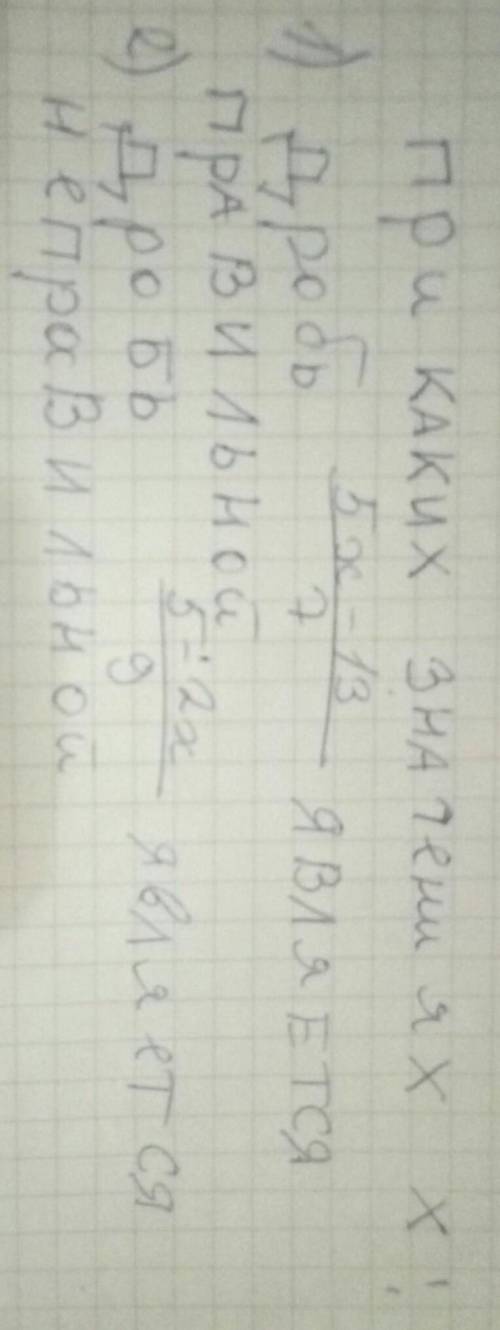 При каких значениях х:
1) Дробь 5х-13/7 является
правильной
2) Дробь 5-2х/9 является
неправильной